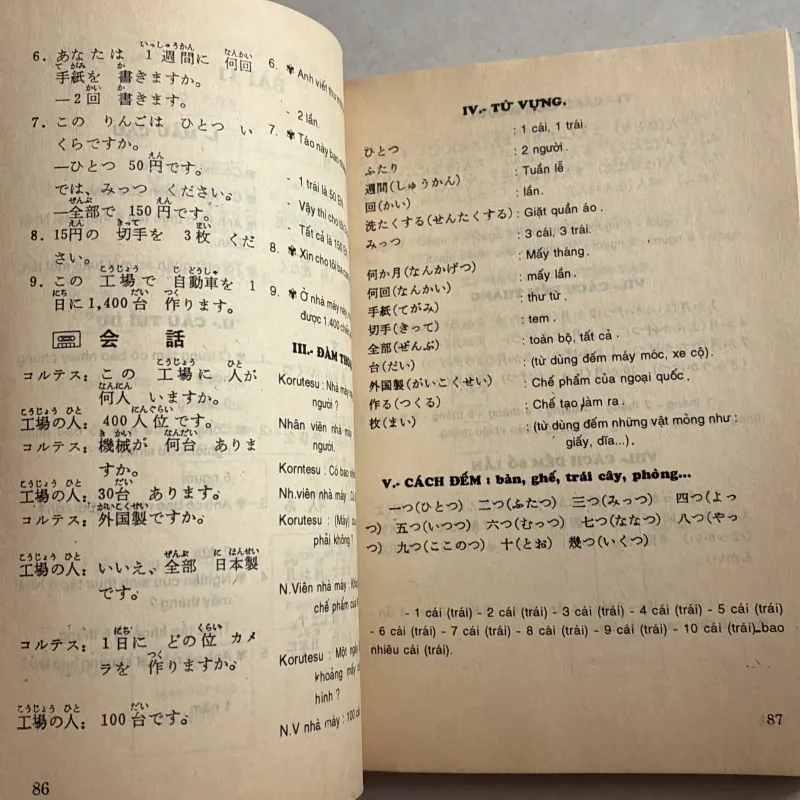 6. あなたは 1週間に 何回
手紙を 書きますか。
―2回 書きます。
7. この りんごは ひとつ い
くらですか。
―ひとつ 50円です。
では、みっつ ください。
―全部で 150円です。
8. 15円の 切手を 3枚 くだ
さい。
9. この 工場で 自動車を 1
日に 1,400台 作ります。
会 話
コルテス: この 工場に 人が
何人 いますか。
工場の人: 400人位です。
コルテス: 機械が 何台 ありま
すか。
工場の人: 30台 あります。
コルテス: 外国製ですか。
工場の人: いいえ、全部 日本製
です。
コルテス: 1日に どの位 カメ
ラを 作りますか。
工場の人: 100台です。
6. ✾ Anh viết thư
- 2 lần.
7. ✾ Táo này bao
- 1 trái là 50 EN
- Vậy thì cho tôi
- Tất cả là 150
8. ✾ Xin cho tôi
9. ✾ Ở nhà máy này
được 1.400
III.- ĐÀM
Korutesu : Nhà máy
người ?
Nhân viên nhà máy
người.
Korntesu : Có bao
Nh.viên nhà máy :
Korutesu : (Máy)
phải không ?
N.Viên nhà máy :
chế phẩm của
Korutesu : Một
khoảng mấy
hình ?
N.V nhà máy : 100
86
IV.- TỪ VỰNG.
ひとつ : 1 cái, 1 trái.
ふたり : 2 người.
週間(しゅうかん) : Tuần lễ
回(かい) : lần.
洗たくする(せんたくする) : Giặt quần áo.
みっつ : 3 cái, 3 trái.
何か月(なんかげつ) : Mấy tháng.
何回(なんかい) : mấy lần.
手紙(てがみ) : thư từ.
切手(きって) : tem.
全部(ぜんぶ) : toàn bộ, tất cả.
台(だい) : (từ dùng đếm máy móc, xe cộ).
外国製(がいこくせい) : Chế phẩm của ngoại quốc.
作る(つくる) : Chế tạo, làm ra.
枚(まい) : (từ dùng đếm những vật mỏng như :
giấy, dĩa...).
V.- CÁCH ĐẾM : bàn, ghế, trái cây, phòng...
一つ(ひとつ) 二つ(ふたつ) 三つ(みっつ) 四つ(よっ
つ) 五つ(いつつ) 六つ(むっつ) 七つ(ななつ) 八つ(やっ
つ) 九つ(ここのつ) 十(とお) 幾つ(いくつ)
- 1 cái (trái) - 2 cái (trái) - 3 cái (trái) - 4 cái (trái) - 5 cái (trái)
- 6 cái (trái) - 7 cái (trái) - 8 cái (trái) - 9 cái (trái) - 10 cái (trái) bao
nhiêu cái (trái).
87